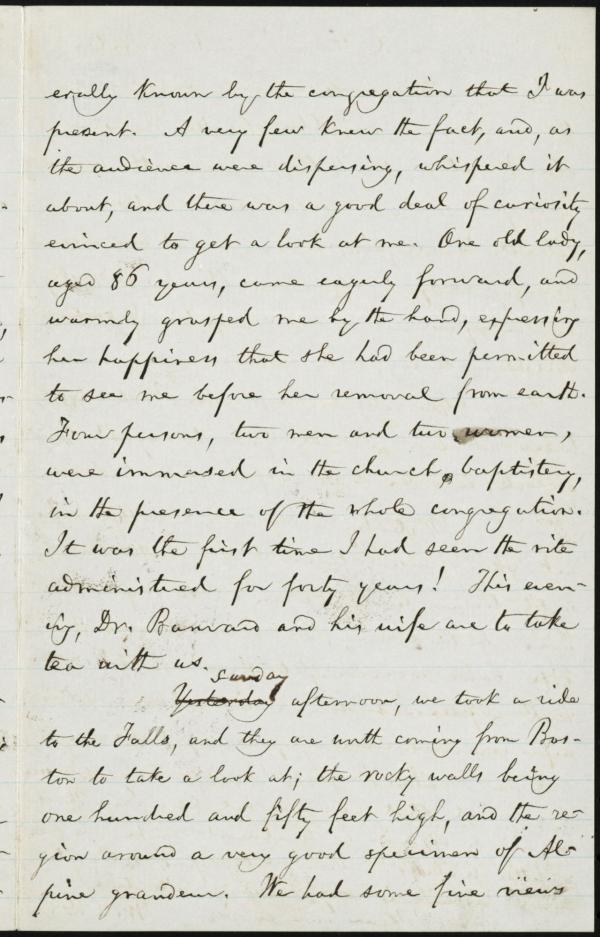 erally known by the congregation that I was
present. A very few knew the fact, and, as
the audience were dispersing, whispered it
about, and there was a good deal of curiosity
evinced to get a look at me. One old lady,
aged 86 years, came eagerly forward, and
warmly grasped me by the hand, expressing
her happiness that she had been permitted
to see me before her removal from earth.
Four persons, two men and two women,
were immersed in the church baptistery,
in the presence of the whole congregation.
It was the first time I had seen the rite
administered for forty years! This even-
ing, Dr. Banvard and his wife are to take
tea with us.
Sunday
Yesterday afternoon, we took a ride
to the Falls, and they are worth coming from Bos-
ton to take a look at; the rocky walls being
one hundred and fifty feet high, and the re-
gion around a very good specimen of Al-
pine grandeur. We had some fine views